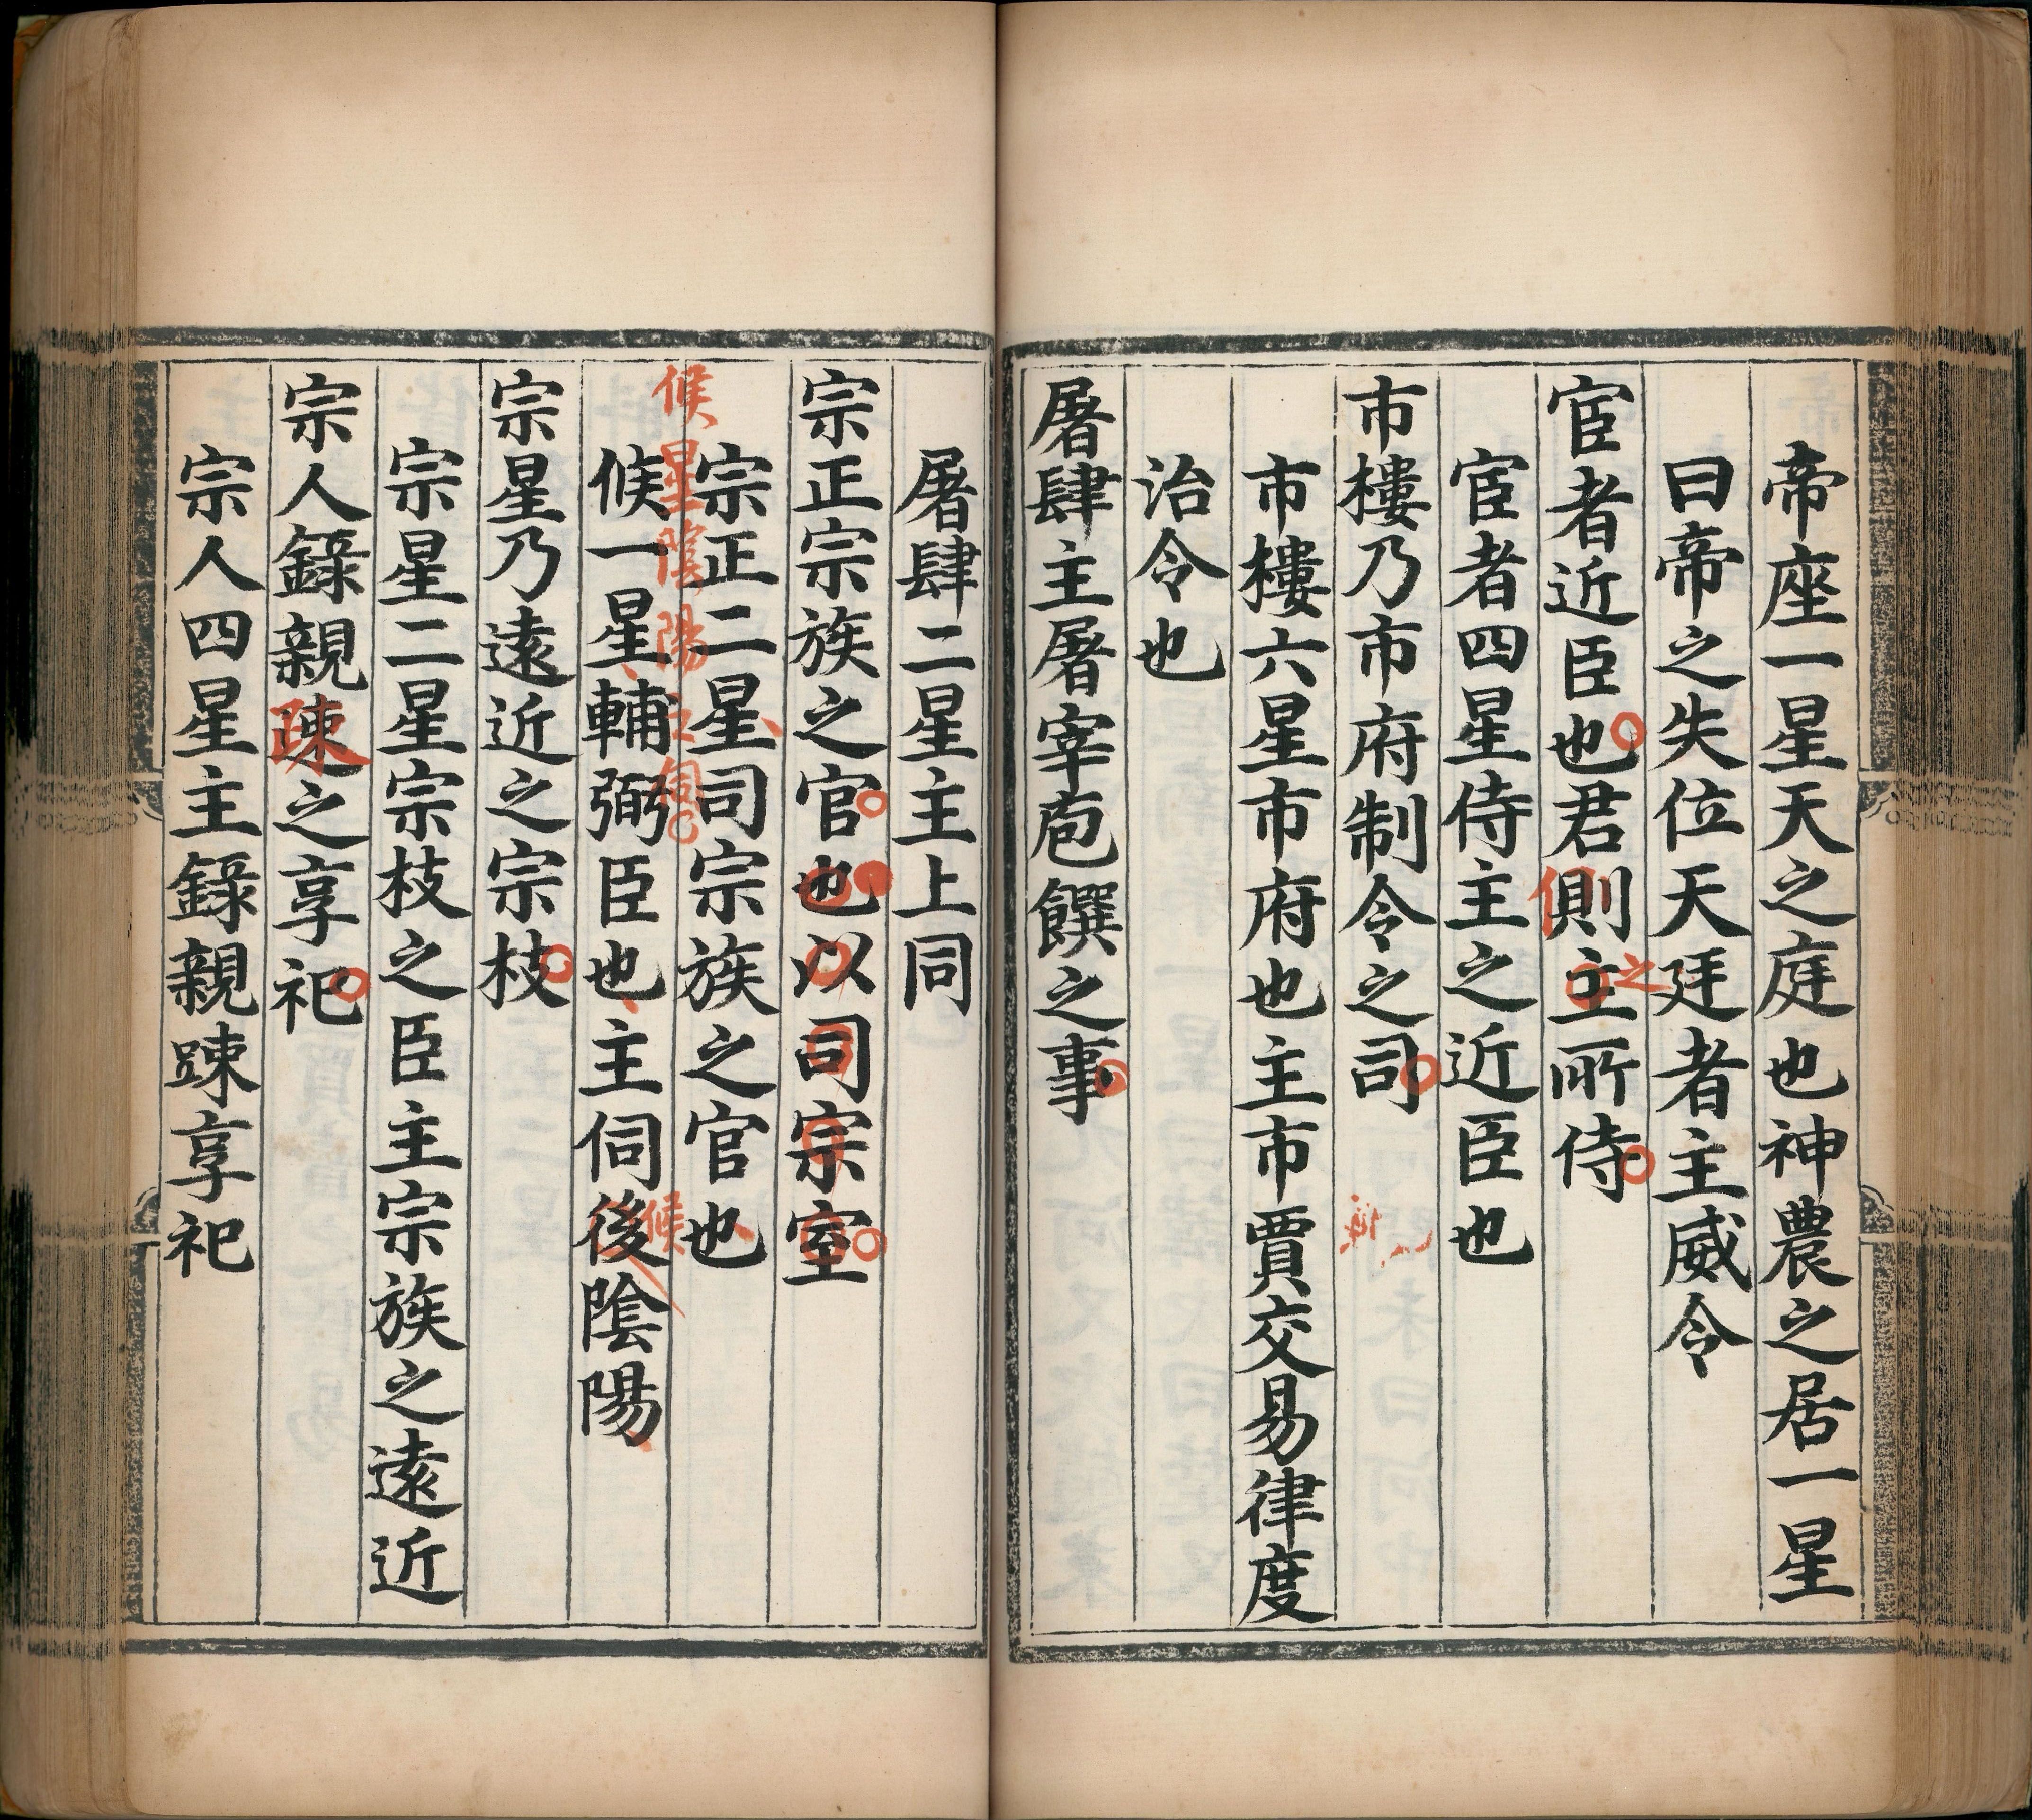 帝座一星天之庭也神農之居一星
曰帝之失位天廷者主威令
宦者近臣也君側主所侍
之
宦者四星侍主之近臣也
市樓乃市府制令之司
市樓六星市府也主市賈交易律度
治令也
屠肆主屠宰庖饌之事
屠肆二星主上同
宗正宗族之官也以司宗室
宗正二星司宗族之官也
候星陰陽之伺
候一星輔弼臣也主伺後陰陽
候
宗星乃遠近之宗枝
宗星二星宗枝之臣主宗族之遠近
宗人錄親疎之享祀
宗人四星主錄親踈享祀